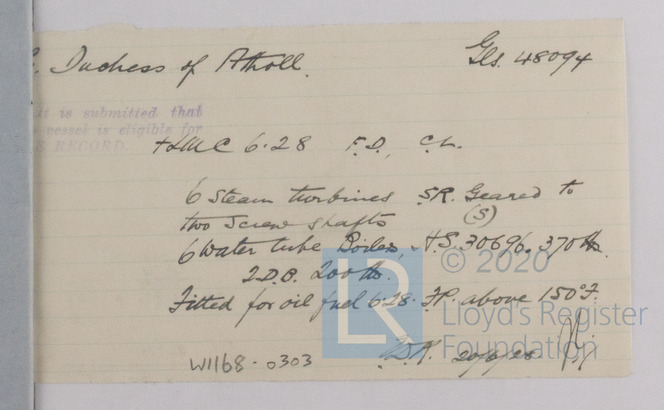 Duchess of Atholl. Gls. 48094
it is submitted that
vessel is eligible for
RECORD.
+LMC 6.28 F.D., C.L.
6 Steam turbines SR. Geared to
two Screw shafts (S)
6 Water tube Boilers, H.S. 30696, 370 lb.
2.D.B. 200 lb.
Fitted for oil fuel 6.28. F.P. above 150°F.
20/6/28
W1168-0303
LR
© 2020
Lloyd's Register
Foundation